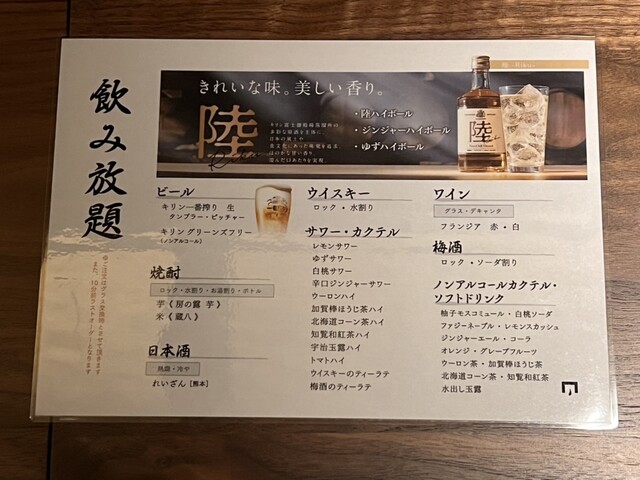 飲み放題
※ご注文はグラス交換制とさせて頂きます
また、10分前ラストオーダーとなります
きれいな味。美しい香り。
陸
Riku
・陸ハイボール
・ジンジャーハイボール
・ゆずハイボール
陸
ビール
キリン一番搾り 生
タンブラー・ピッチャー
キリン グリーンズフリー
(ノンアルコール)
焼酎
ロック・水割り・お湯割り・ボトル
芋《房の露 芋》
米《蔵八》
日本酒
熱燗・冷や
れいざん [熊本]
ウイスキー
ロック・水割り
サワー・カクテル
レモンサワー
ゆずサワー
白桃サワー
辛口ジンジャーサワー
ウーロンハイ
加賀棒ほうじ茶ハイ
北海道コーン茶ハイ
知覧和紅茶ハイ
宇治玉露ハイ
トマトハイ
ウイスキーのティーラテ
梅酒のティーラテ
ワイン
グラス・デキャンタ
フランジア 赤・白
梅酒
ロック・ソーダ割り
ノンアルコールカクテル・
ソフトドリンク
柚子モスコミュール・白桃ソーダ
ファジーネーブル・レモンスカッシュ
ジンジャーエール・コーラ
オレンジ・グレープフルーツ
ウーロン茶・加賀棒ほうじ茶
北海道コーン茶・知覧和紅茶
水出し玉露